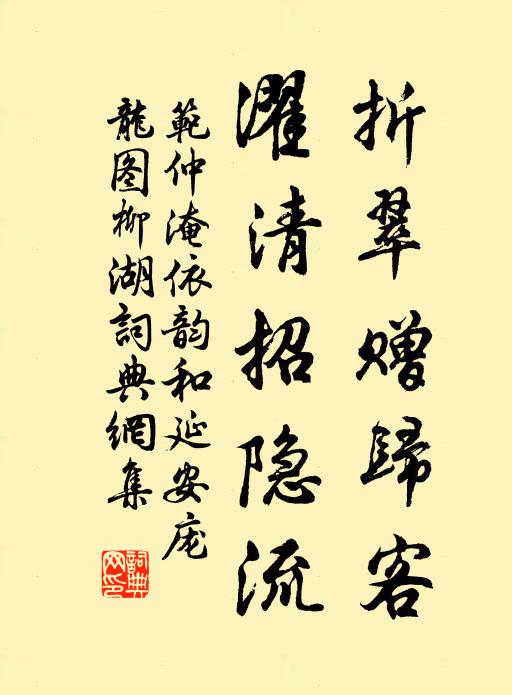 折翠赠歸客
濯清招隐流
範仲淹依韵和延安庞
龍图柳湖詞典網集
詞典
网印